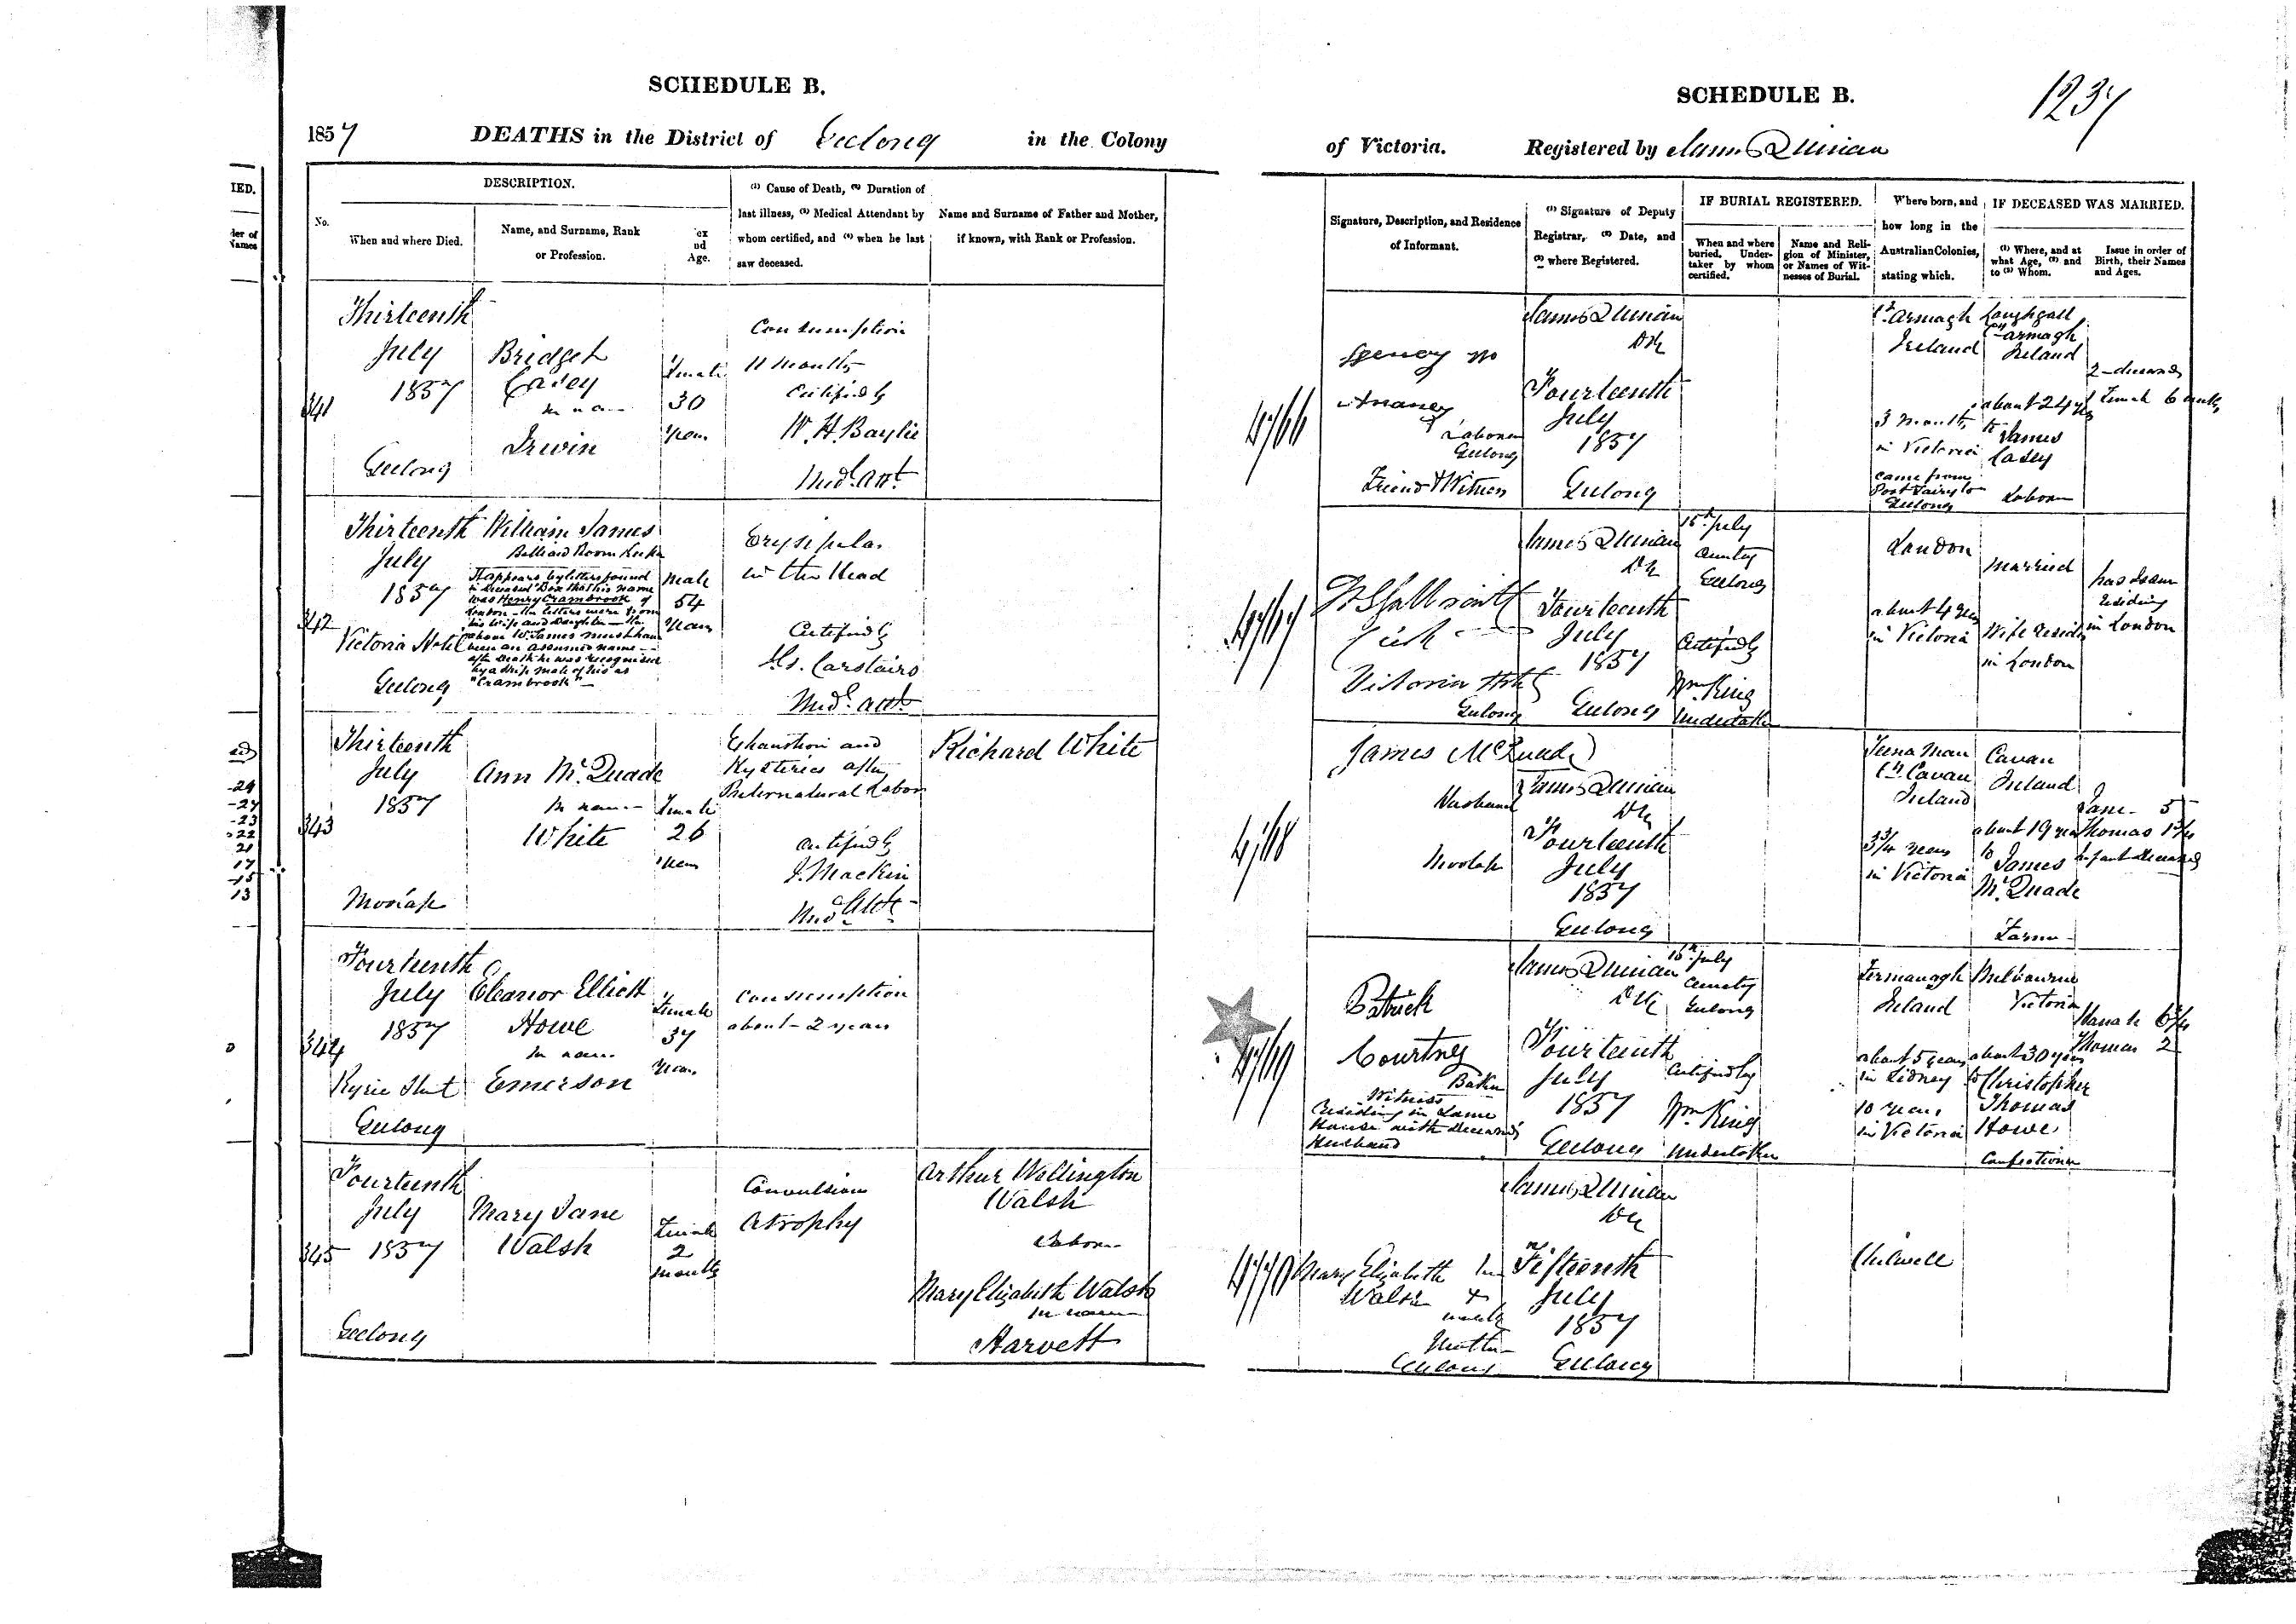 SCHEDULE B.
1857 DEATHS in the District of Geelong in the Colony
IED.
der of
Names
DESCRIPTION.
No.
When and where Died.
Name, and Surname, Rank
or Profession.
ex
nd
Age.
(1) Cause of Death, (2) Duration of
last illness, (3) Medical Attendant by
whom certified, and (4) when he last
saw deceased.
Name and Surname of Father and Mother,
if known, with Rank or Profession.
341
Thirteenth
July
1857
Geelong
Bridget
Casey
Irwin
Female
30
Years
Consumption
11 Months
Certified by
W. H. Baylie
Med. Att.
342
Thirteenth
July
1857
Victoria Hotel
Geelong
William James
Billiard Room Keeper
It appears by letters found
in deceased Box that his name
was Henry Crambrook of
London - the letters were from
his wife and daughter - the
above W. James must have
been an assumed name -
after death he was recognised
by a ship mate of his as
"Crambrook" -
Male
54
Years
Erysipelas
in the Head
Certified by
Carstairs
Med. Att.
343
Thirteenth
July
1857
Ann McQuade
White
Female
26
Years
Exhaustion and
Hysteries after
Preternatural Labor
Certified by
J. Mackin
Med. Att.
Richard White
344
Fourteenth
July
1857
Ryrie Street
Geelong
Eleanor Elliott
Howe
Emerson
Female
37
Years
Consumption
about - 2 years
345
Fourteenth
July
1857
Geelong
Mary Jane
Walsh
Female
2
Months
Convulsions
Atrophy
Arthur Wellington
Walsh
Labourer
Mary Elizabeth Walsh
Harvett
29
24
23
22
21
17
15
13
SCHEDULE B.
1237
of Victoria. Registered by James Quinan
Signature, Description, and Residence
of Informant.
(1) Signature of Deputy
Registrar, (2) Date, and
(3) where Registered.
IF BURIAL REGISTERED.
When and where
buried. Under-
taker by whom
certified.
Name and Reli-
gion of Minister,
or Names of Wit-
nesses of Burial.
Where born, and
how long in the
Australian Colonies,
stating which.
IF DECEASED WAS MARRIED.
(1) Where, and at
what Age, (2) and
to (3) Whom.
Issue in order of
Birth, their Names
and Ages.
4766
Laborer
Geelong
Friend & Witness
James Quinan
DR
Fourteenth
July
1857
Geelong
Cy Armagh
Ireland
3 months
in Victoria
came from
Port Fairy to
Geelong
Loughgall
Cy Armagh
Ireland
about 24 yrs
to
James
Casey
Laborer
2 - deceased
Female 6 weeks
4767
Clerk
Victoria Hotel
Geelong
James Quinan
DR
Fourteenth
July
1857
Geelong
15th July
Cemetery
Geelong
Certified by
Wm. King
Undertaker
London
about 4 years
in Victoria
Married
Wife resides
in London
has Issue
residing
in London
4768
James McQuade
Husband
Moolap
James Quinan
DR
Fourteenth
July
1857
Geelong
Cy Cavan
Ireland
3 3/4 years
in Victoria
Cavan
Ireland
about 19 years
to
James
McQuade
Farmer
Jane - 5
Thomas 1 3/4
Infant deceased
4769
Patrick
Courtney
Baker
Witness
Residing in same
House with deceased's
Husband
James Quinan
DR
Fourteenth
July
1857
Geelong
15th July
Cemetery
Geelong
Certified by
Wm. King
Undertaker
Fermanagh
Ireland
about 5 years
in Sidney
10 years
in Victoria
Melbourne
Victoria
about 30 years
to Christopher
Thomas
Howe
Confectioner
Thomas 2
4770
Mary Elizabeth her
Walsh X
mark
Mother
Geelong
James Quinan
DR
Fifteenth
July
1857
Geelong
Chilwell